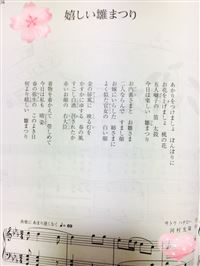 嬉しい雛まつり
あかりをつけましょ ぼんぼりに
お花をあげましょ 桃の花
五人囃子の 笛太鼓
今日は楽しい 雛まつり
お内裏さまと お雛さま
二人ならんで すまし顔
お嫁にいらした 姉さまに
よく似た官女の 白い顔
金の屏風に 映る灯を
かすかにゆする 春の風
すこし白酒 めされたか
赤いお顔の 右大臣
着物を着かえて 帯しめて
今日は私も 晴姿
春の弥生の このよき日
何より嬉しい 雛まつり
サトウ ハチロー
河村光陽